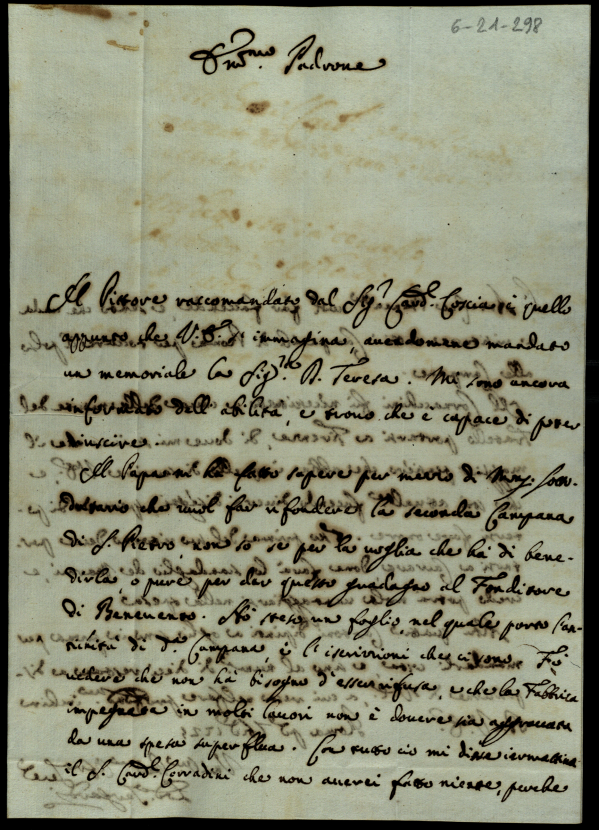 6-21-298
Em.mo Padrone
Il Pittore raccomandato dal Sig.r Card. Coscia è quello
appunto che V. E. s'immagina, avendomene mandato
un memoriale la Sig.ra D. Teresa. Mi sono ancora
informato dell'abilità, e trovo che è capace di poter
riuscire.
Il Papa mi ha fatto sapere per mezzo di Mons. Sotto-
datario che vuol far rifondere la seconda Campana
di S. Pietro, non so se per la voglia che ha di bene-
dirla, o pure per dar questo guadagno al Fonditore
di Benevento. Hò steso un foglio, nel quale porto l'an-
tichità di d.a Campana, e l'iscrizzioni che ci sono. Fò
vedere che non ha bisogno d'esser rifusa, e che la Fabbrica
impegnata in molti lavori non è dovere sia aggravata
da una spesa superflua. Con tutto ciò mi disse iermattina
il S. Card. Corradini che non averei fatto niente, perche